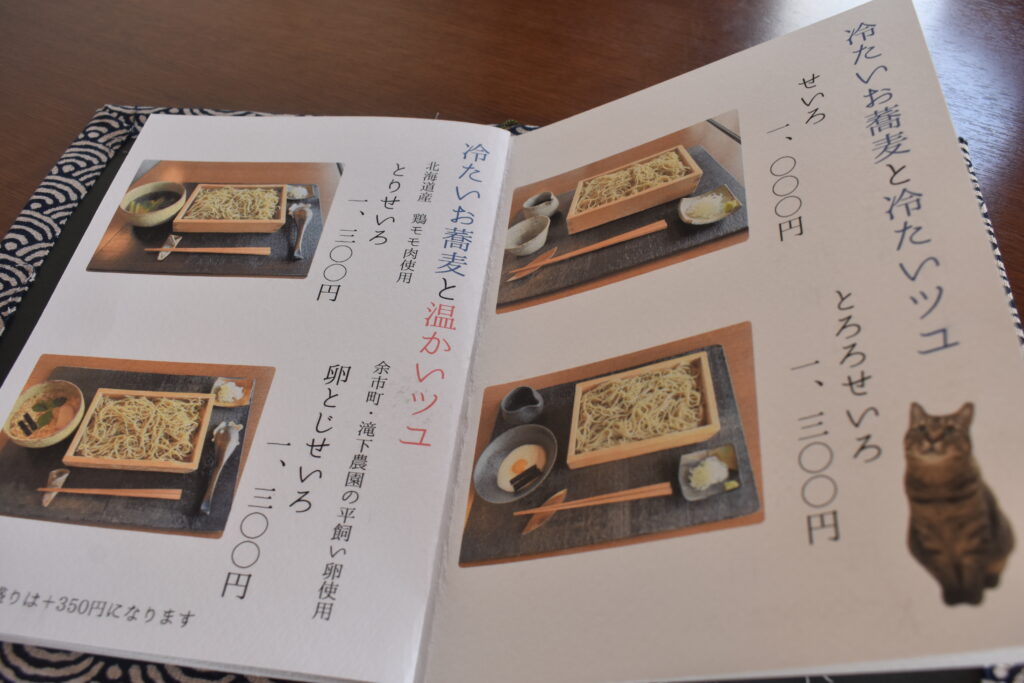 冷たいお蕎麦と冷たいツユ
せいろ
一、〇〇〇円
とろろせいろ
一、三〇〇円
冷たいお蕎麦と温かいツユ
北海道産 鶏モモ肉使用
とりせいろ
一、三〇〇円
余市町・滝下農園の平飼い卵使用
卵とじせいろ
一、三〇〇円
盛りは＋350円になります